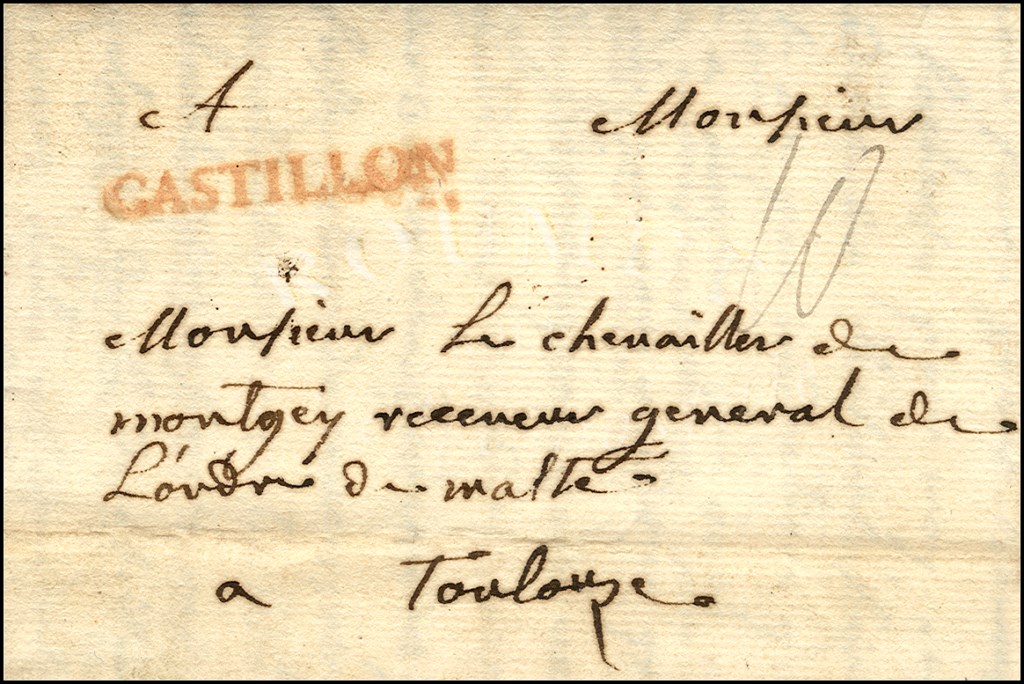 A Monsieur
CASTILLON
10
Monsieur Le chevailler de
montgey receveur general de
L'ordre de malte
a Toulouze